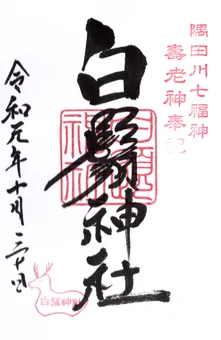 隅田川七福神
壽老神奉祀
白鬚神社
令和元年十月三十日
白鬚神社